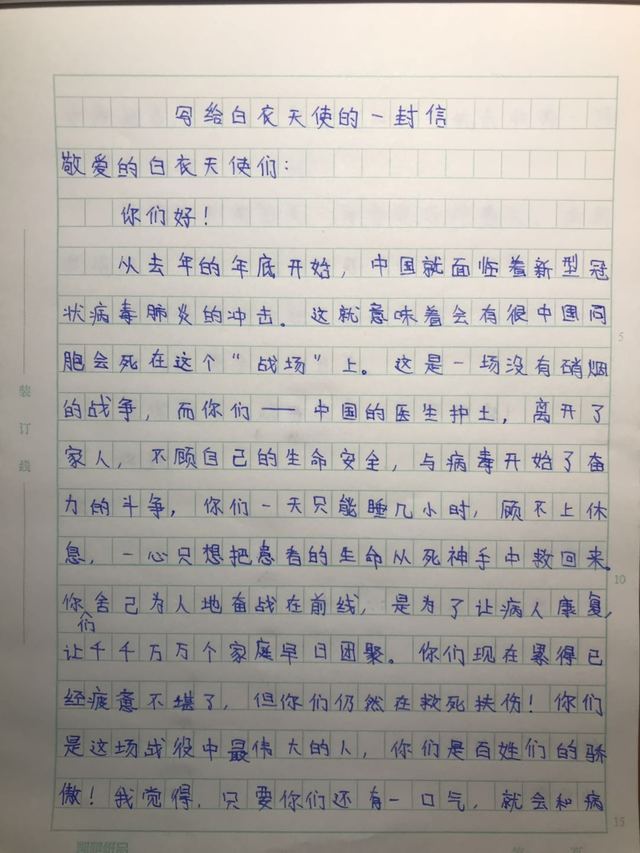 写给白衣天使的一封信
敬爱的白衣天使们：
你们好！
从去年的年底开始，中国就面临着新型冠
状病毒肺炎的冲击。这就意味着会有很中国同
胞会死在这个“战场”上。这是一场没有硝烟
的战争，而你们——中国的医生护士，离开了
家人，不顾自己的生命安全，与病毒开始了奋
力的斗争，你们一天只能睡几小时，顾不上休
息，一心只想把患者的生命从死神手中救回来。
你们舍己为人地奋战在前线，是为了让病人康复，
让千千万万个家庭早日团聚。你们现在累得已
经疲惫不堪了，但你们仍然在救死扶伤！你们
是这场战役中最伟大的人，你们是百姓们的骄
傲！我觉得，只要你们还有一口气，就会和病
装订线
5
10
15